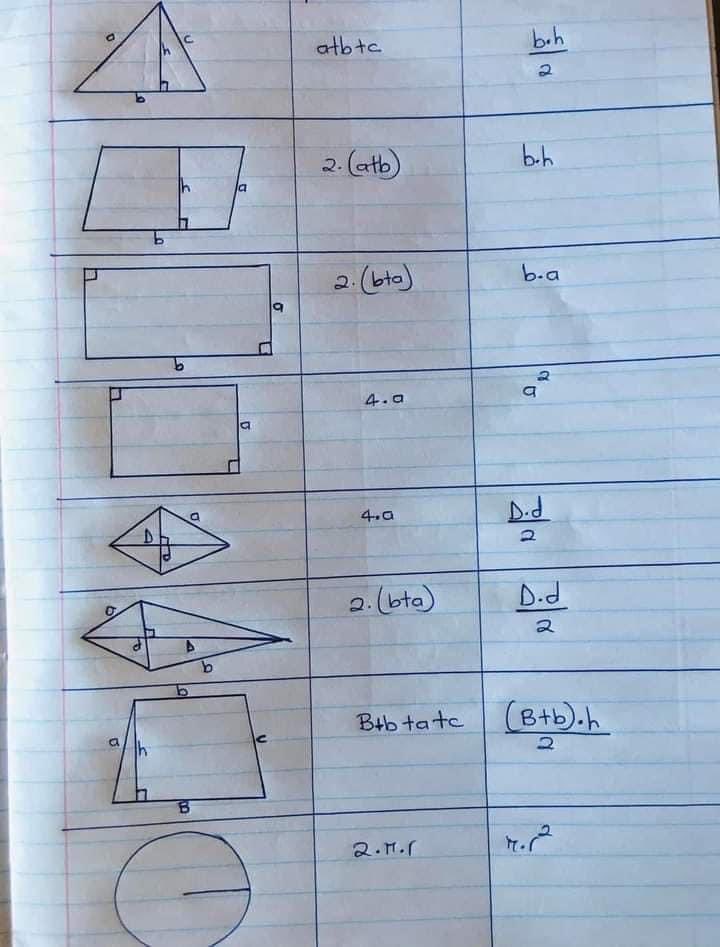 a c
h
b
a+b+c
b.h
2
h a
b
2.(a+b)
b.h
a
b
2.(b+a)
b.a
a
4.a
a²
a
D
d
4.a
D.d
2
a
d D
b
2.(b+a)
D.d
2
b
a h c
B
B+b+a+c
(B+b).h
2
2.π.r
π.r²